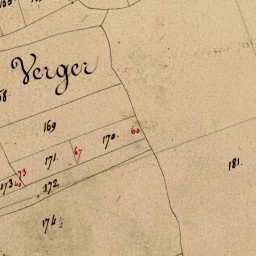 Verger
169
170.
60
171.
67
181.
73
173
172.
174